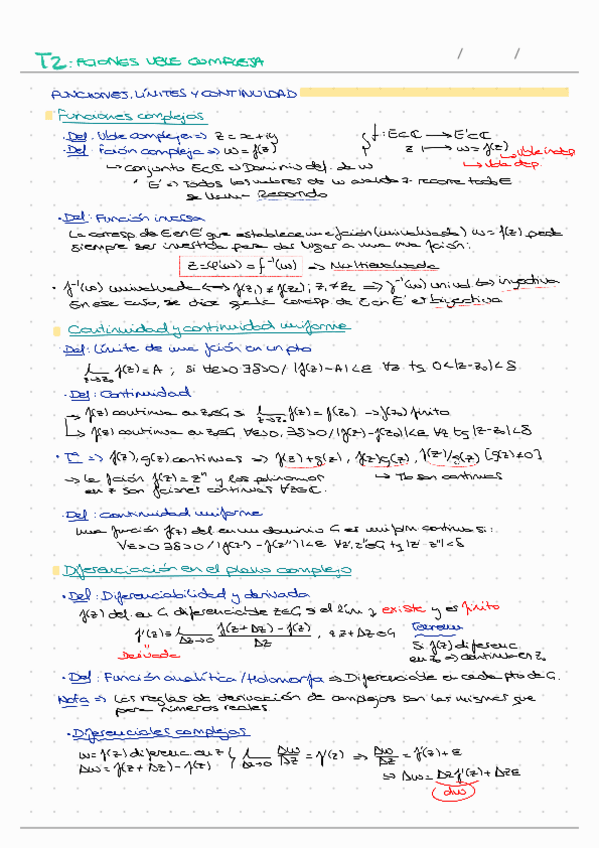 T2: FCIONES VBLE COMPLEJA / /
FUNCIONES, LÍMITES Y CONTINUIDAD
Funciones complejas
· Def: Vble compleja => z = x+iy
· Def: Fción compleja => w = f(z)
f: E⊂C → E'⊂C
z ↦ w = f(z)
vble indep.
vble dep.
↳ Conjunto E⊂C => Dominio def. de w
" E' => Todos los valores de w cuando z recorre todo E
se llama Recorrido
· Def: Función inversa
La corresp. de E en E' que establece una fción (univaluada) w = f(z) puede
siempre ser invertida para dar lugar a una nva fción:
z = φ(w) = f⁻¹(w) => Multivaluada
· f⁻¹(w) univaluada <=> f(z₁) ≠ f(z₂); z₁ ≠ z₂ => f⁻¹(w) unival. inyectiva
En ese caso, se dice que la corresp. de E en E' es biyectiva
Continuidad y continuidad uniforme
· Def: Límite de una fción en un pto
L f(z) = A ; si ∀ε>0 ∃δ>0 / |f(z) - A| < ε ∀z tq 0<|z-z₀|<δ
z→z₀
· Def: Continuidad
→ f(z) continua en z₀∈G si L f(z) = f(z₀) → f(z₀) finito
z→z₀
↳ f(z) continua en z₀∈G ∀ε>0, ∃δ>0 / |f(z) - f(z₀)| < ε ∀z tq |z-z₀| < δ
· Tª => f(z), g(z) continuas => f(z)+g(z), f(z)g(z), f(z)/g(z) [g(z)≠0]
→ La fción f(z) = zⁿ y los polinomios
en z son fciones continuas ∀z∈C.
↳ Tb son continuas
· Def: Continuidad uniforme
Una función f(z) def en un dominio G es unifrm. continua si:
∀ε>0 ∃δ>0 / |f(z') - f(z'')| < ε ∀z', z''∈G tq |z'-z''| < δ
Diferenciación en el plano complejo
· Def: Diferenciabilidad y derivada
f(z) def. en G diferenciable z∈G si el lím ↓ existe y es finito
f'(z) = L f(z+Δz) - f(z) / Δz , z, z+Δz∈G
Δz→0
Derivada
Teorema
Si f(z) diferenc.
en z₀ => continua en z₀
· Def: Función analítica / Holomorfa => Diferenciable en cada pto de G.
Nota => Las reglas de derivación de complejos son las mismas que
para números reales
· Diferenciales complejos
w = f(z) diferenc en z
Δw = f(z+Δz) - f(z)
L Δw/Δz = f'(z) => Δw/Δz = f'(z) + ε
Δz→0
=> Δw = Δz f'(z) + Δzε
dw